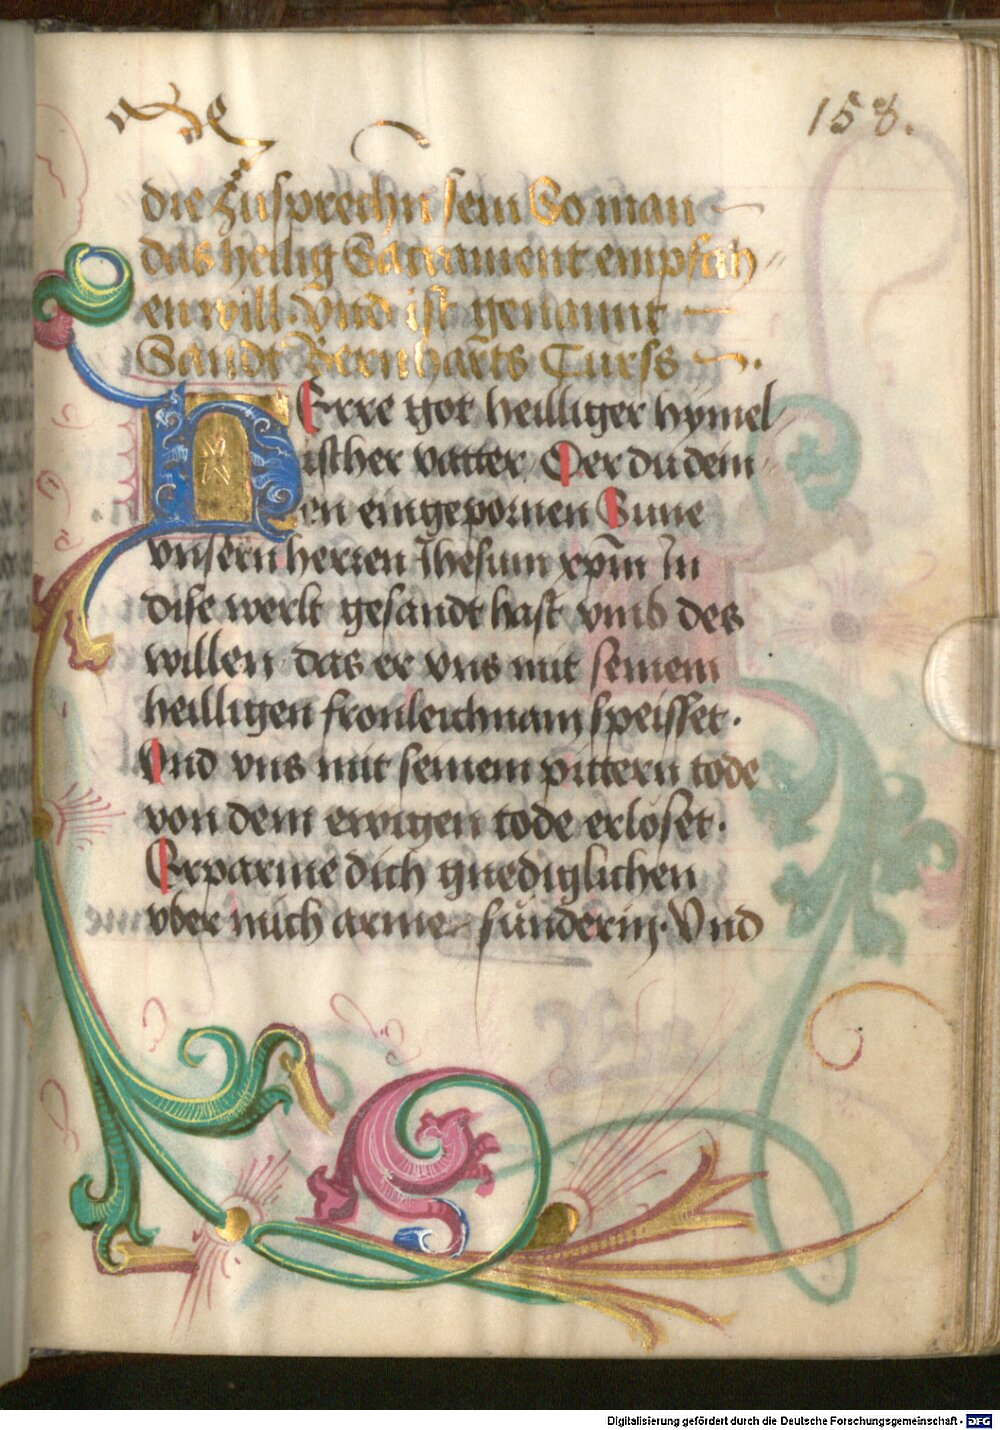 158.
die zusprechn sein So man
das heilig Sacrament empfah
en will. Vnd ist genannt
Sandt Bernharts Curss
HErre got heilliger hymel
ischer vatter, Der du dein
en eingepornen Sune
vnsern herren Jhesum xp̄m In
dise werlt gesandt hast vmb des
willen das er vns mit seinem
heilligen fronleichnam speisset.
Vnd vns mit seinem pittern tode
von dem ewigen tode erlöset.
Erparme dich gnediglichen
vber mich arme sünderin. Vnd
Digitalisierung gefördert durch die Deutsche Forschungsgemeinschaft - DFG